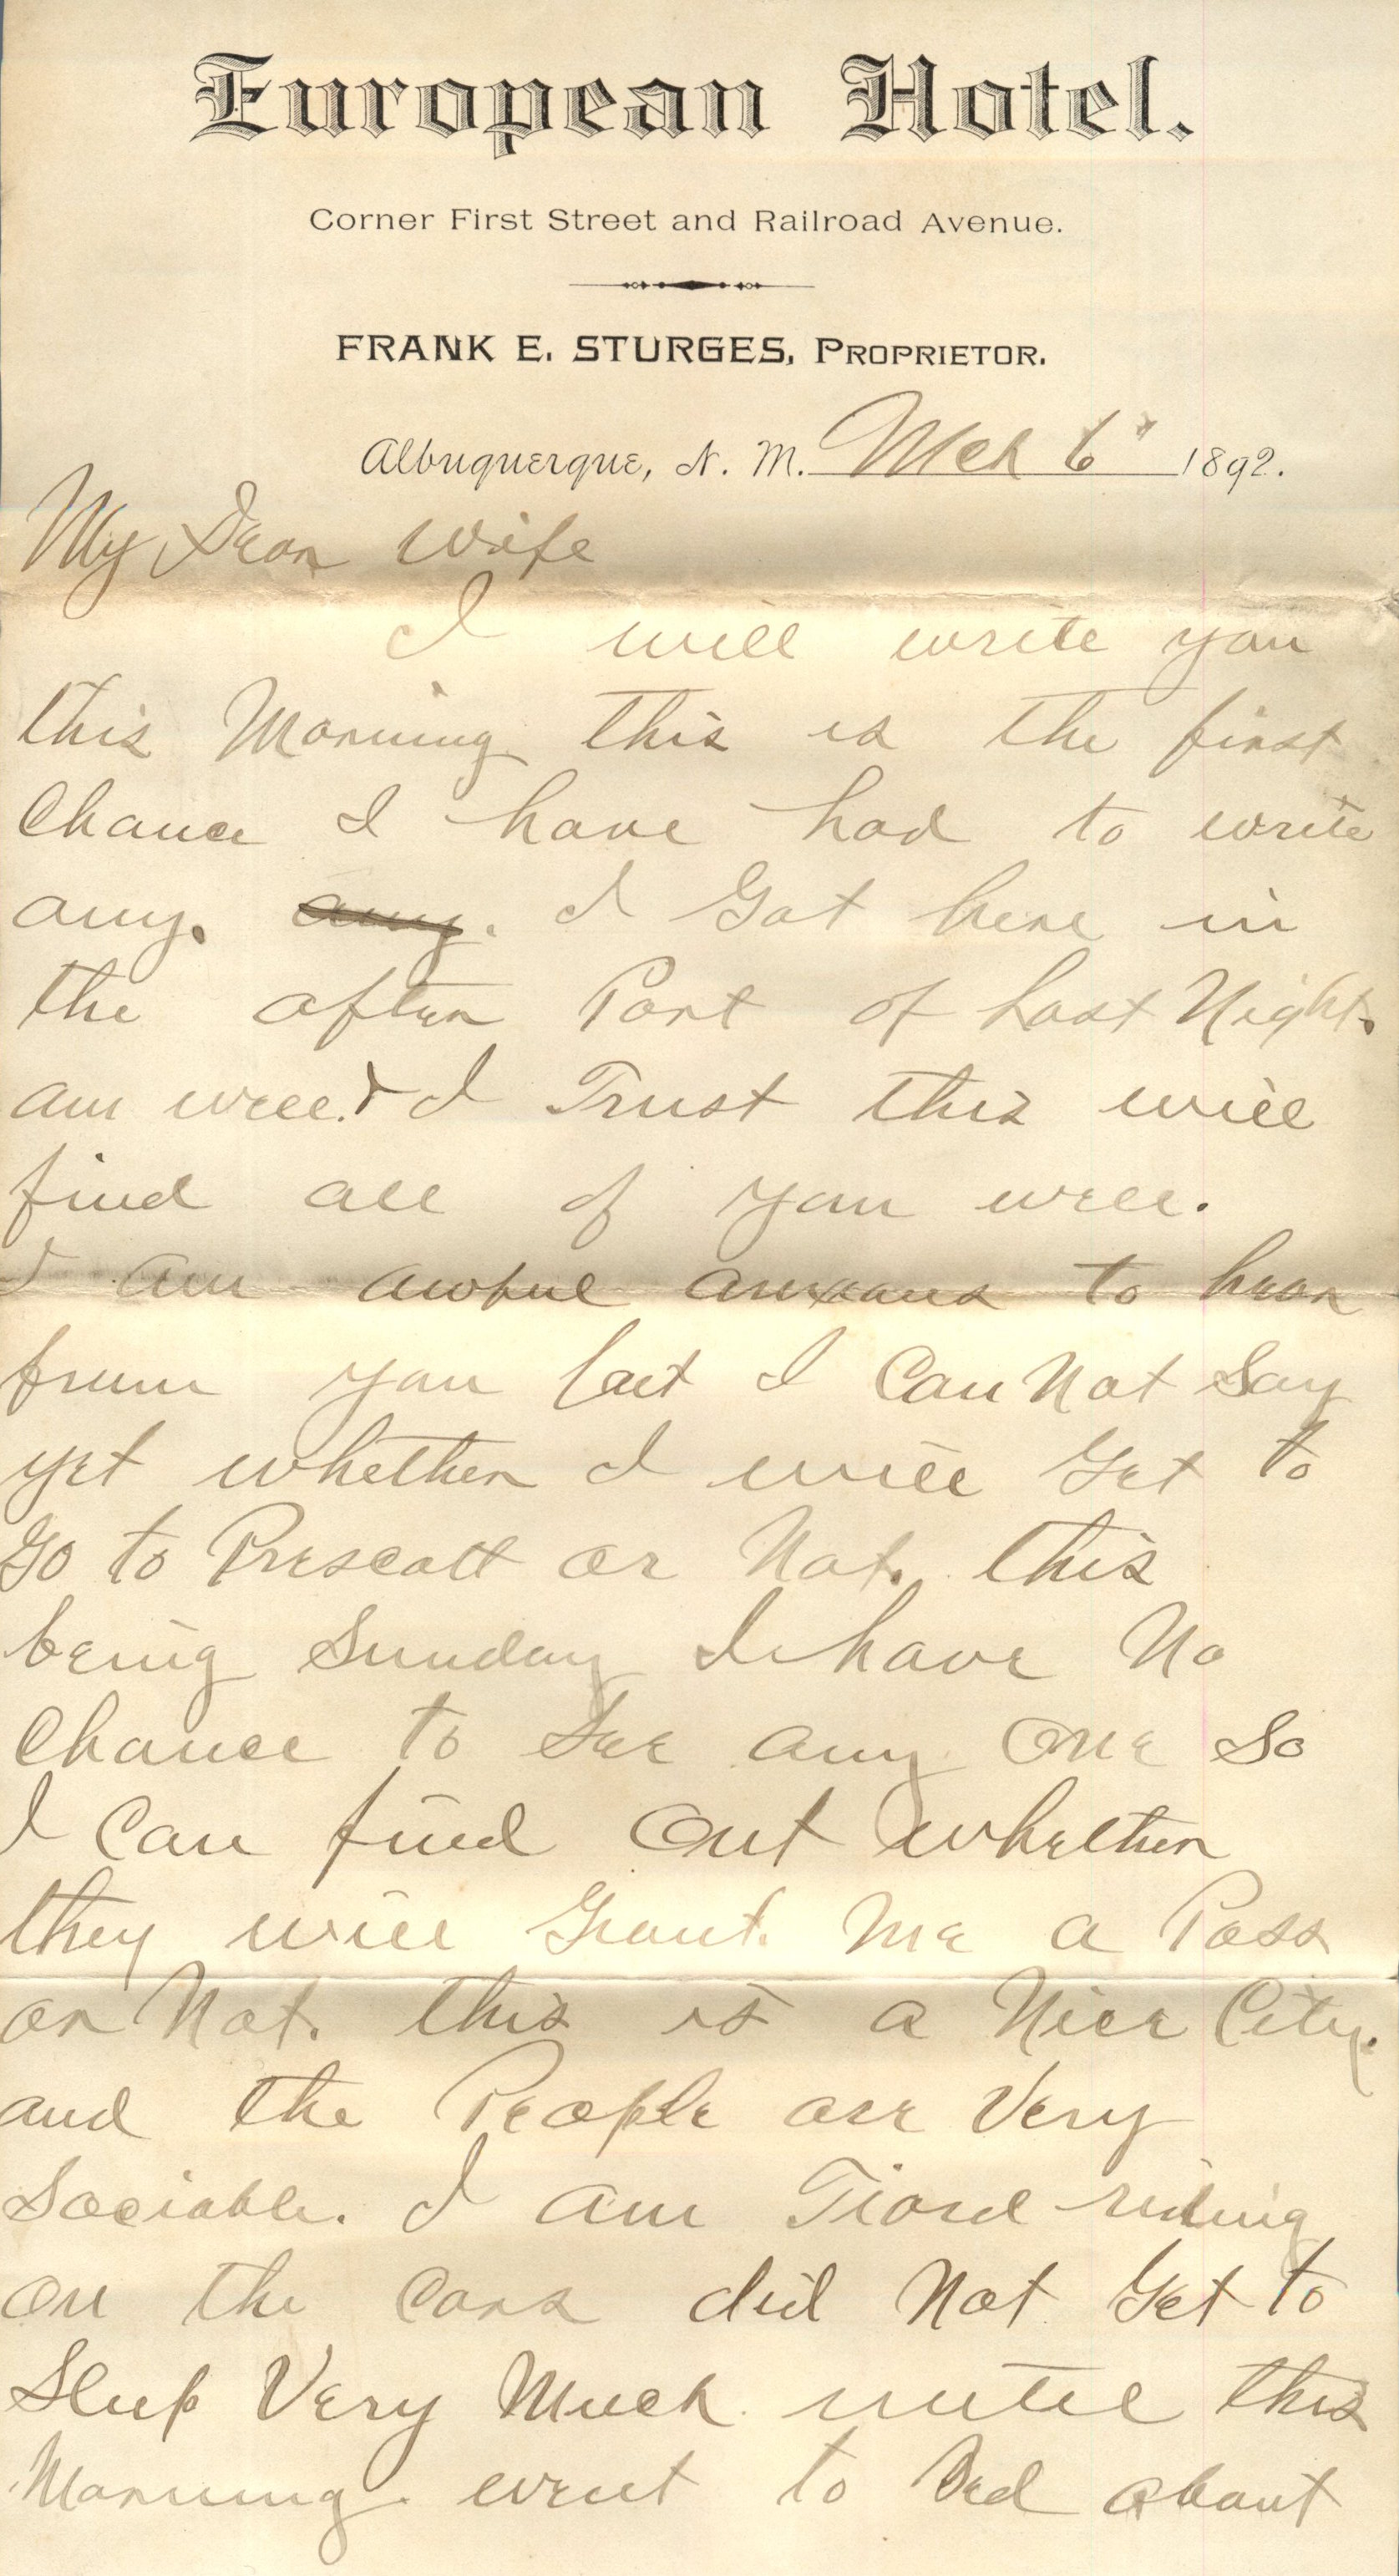 European Hotel.
Corner First Street and Railroad Avenue.
FRANK E. STURGES, PROPRIETOR.
Albuquerque, N. M. Mch 6" 1892.
My Dear Wife
I will write you
this Morning this is the first
Chance I have had to write
any. any. I Got here in
the after Part of Last Night.
am well. & I Trust this will
find all of you well.
I am awful anxious to hear
from you but I Can Not Say
yet whether I will Get to
Go to Prescott or Not. this
being Sunday I have No
Chance to See any One So
I Can find Out whether
they will Grant Me a Pass
or Not. this is a Nice City.
and the People are Very
Sociable. I am Tiard riding
on the Cars did Not Get to
Sleep Very Much until this
Morning. went to Bed about